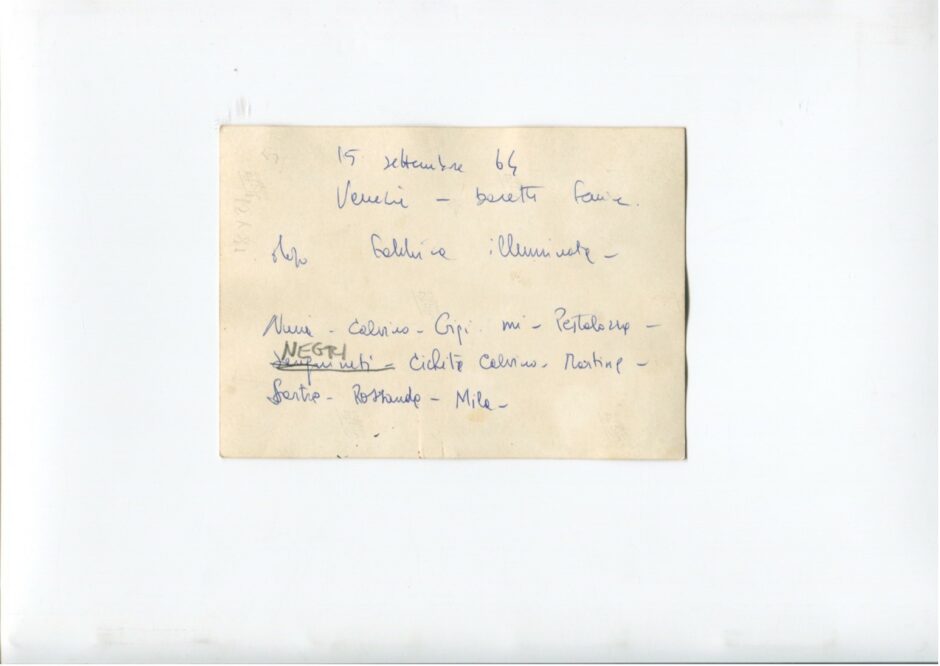 15 settembre 64
Venezia – Fenice.
dopo Fabbrica illuminata –
Nuria – Calvino – Gigi. mi – Pestalozza –
NEGRI
Sanguineti – Cichita Calvino – Martina –
Sartre – Rossanda – Mila –